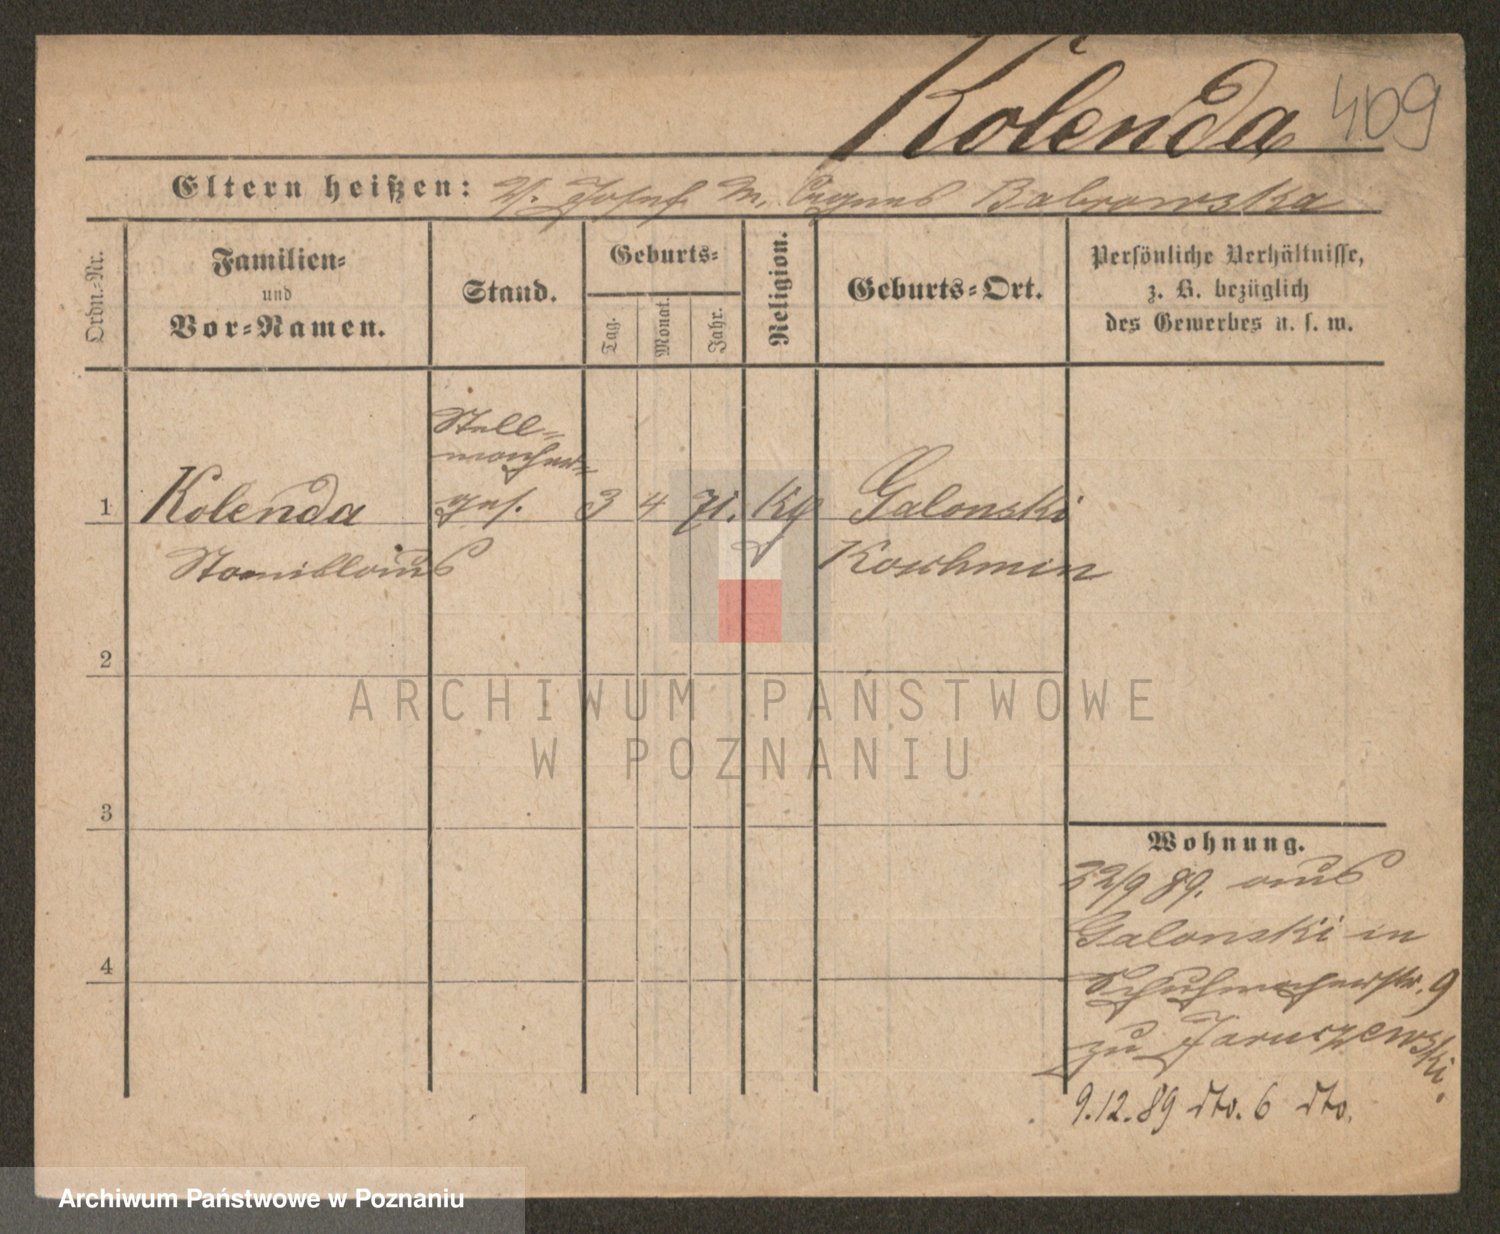 Kolenda 409
Eltern heißen: V. Josef M. Agnes Babrowska
Ordn.-Nr.
Familien-
und
Vor-Namen.
Stand.
Geburts-
Tag.
Monat.
Jahr.
Religion.
Geburts-Ort.
Persönliche Verhältnisse,
z. B. bezüglich
des Gewerbes u. s. w.
Stell-
macher-
1 Kolenda ges. 3 4 71. Galonski
Stanislaus Koschmin
2
ARCHIWUM PAŃSTWOWE
W POZNANIU
3
Wohnung.
22/9 89. aus
Galonski in
4
Schuhmacherstr. 9
zu Jaruczewski.
9.12.89 dto. 6 dto.
Archiwum Państwowe w Poznaniu